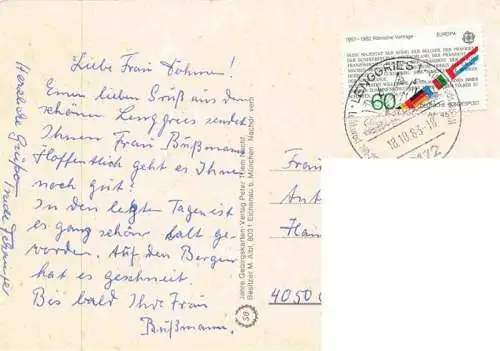 Liebe Frau Dohmen!
Einen lieben Gruß aus dem
schönen Lenggries sendet
Ihnen Frau Bußmann
Hoffentlich geht es Ihnen
noch gut!
In den letzten Tagen ist
es ganz schön kalt ge-
worden. Auf den Bergen
hat es geschneit.
Bis bald Ihre Frau
Bußmann.
Herzliche Grüße
Trude
Jahre Gebirgskarten Verlag Peter Thein Nachf.
Besitzer M. Albl, 8031 Eichenau b. München Nachdr. verb.
50
Frau
Ant
Hain
4050
1957-1982 Römische Verträge EUROPA
60
DEUTSCHE BUNDESPOST
LENGGRIES 1
18.10.83-10
8172